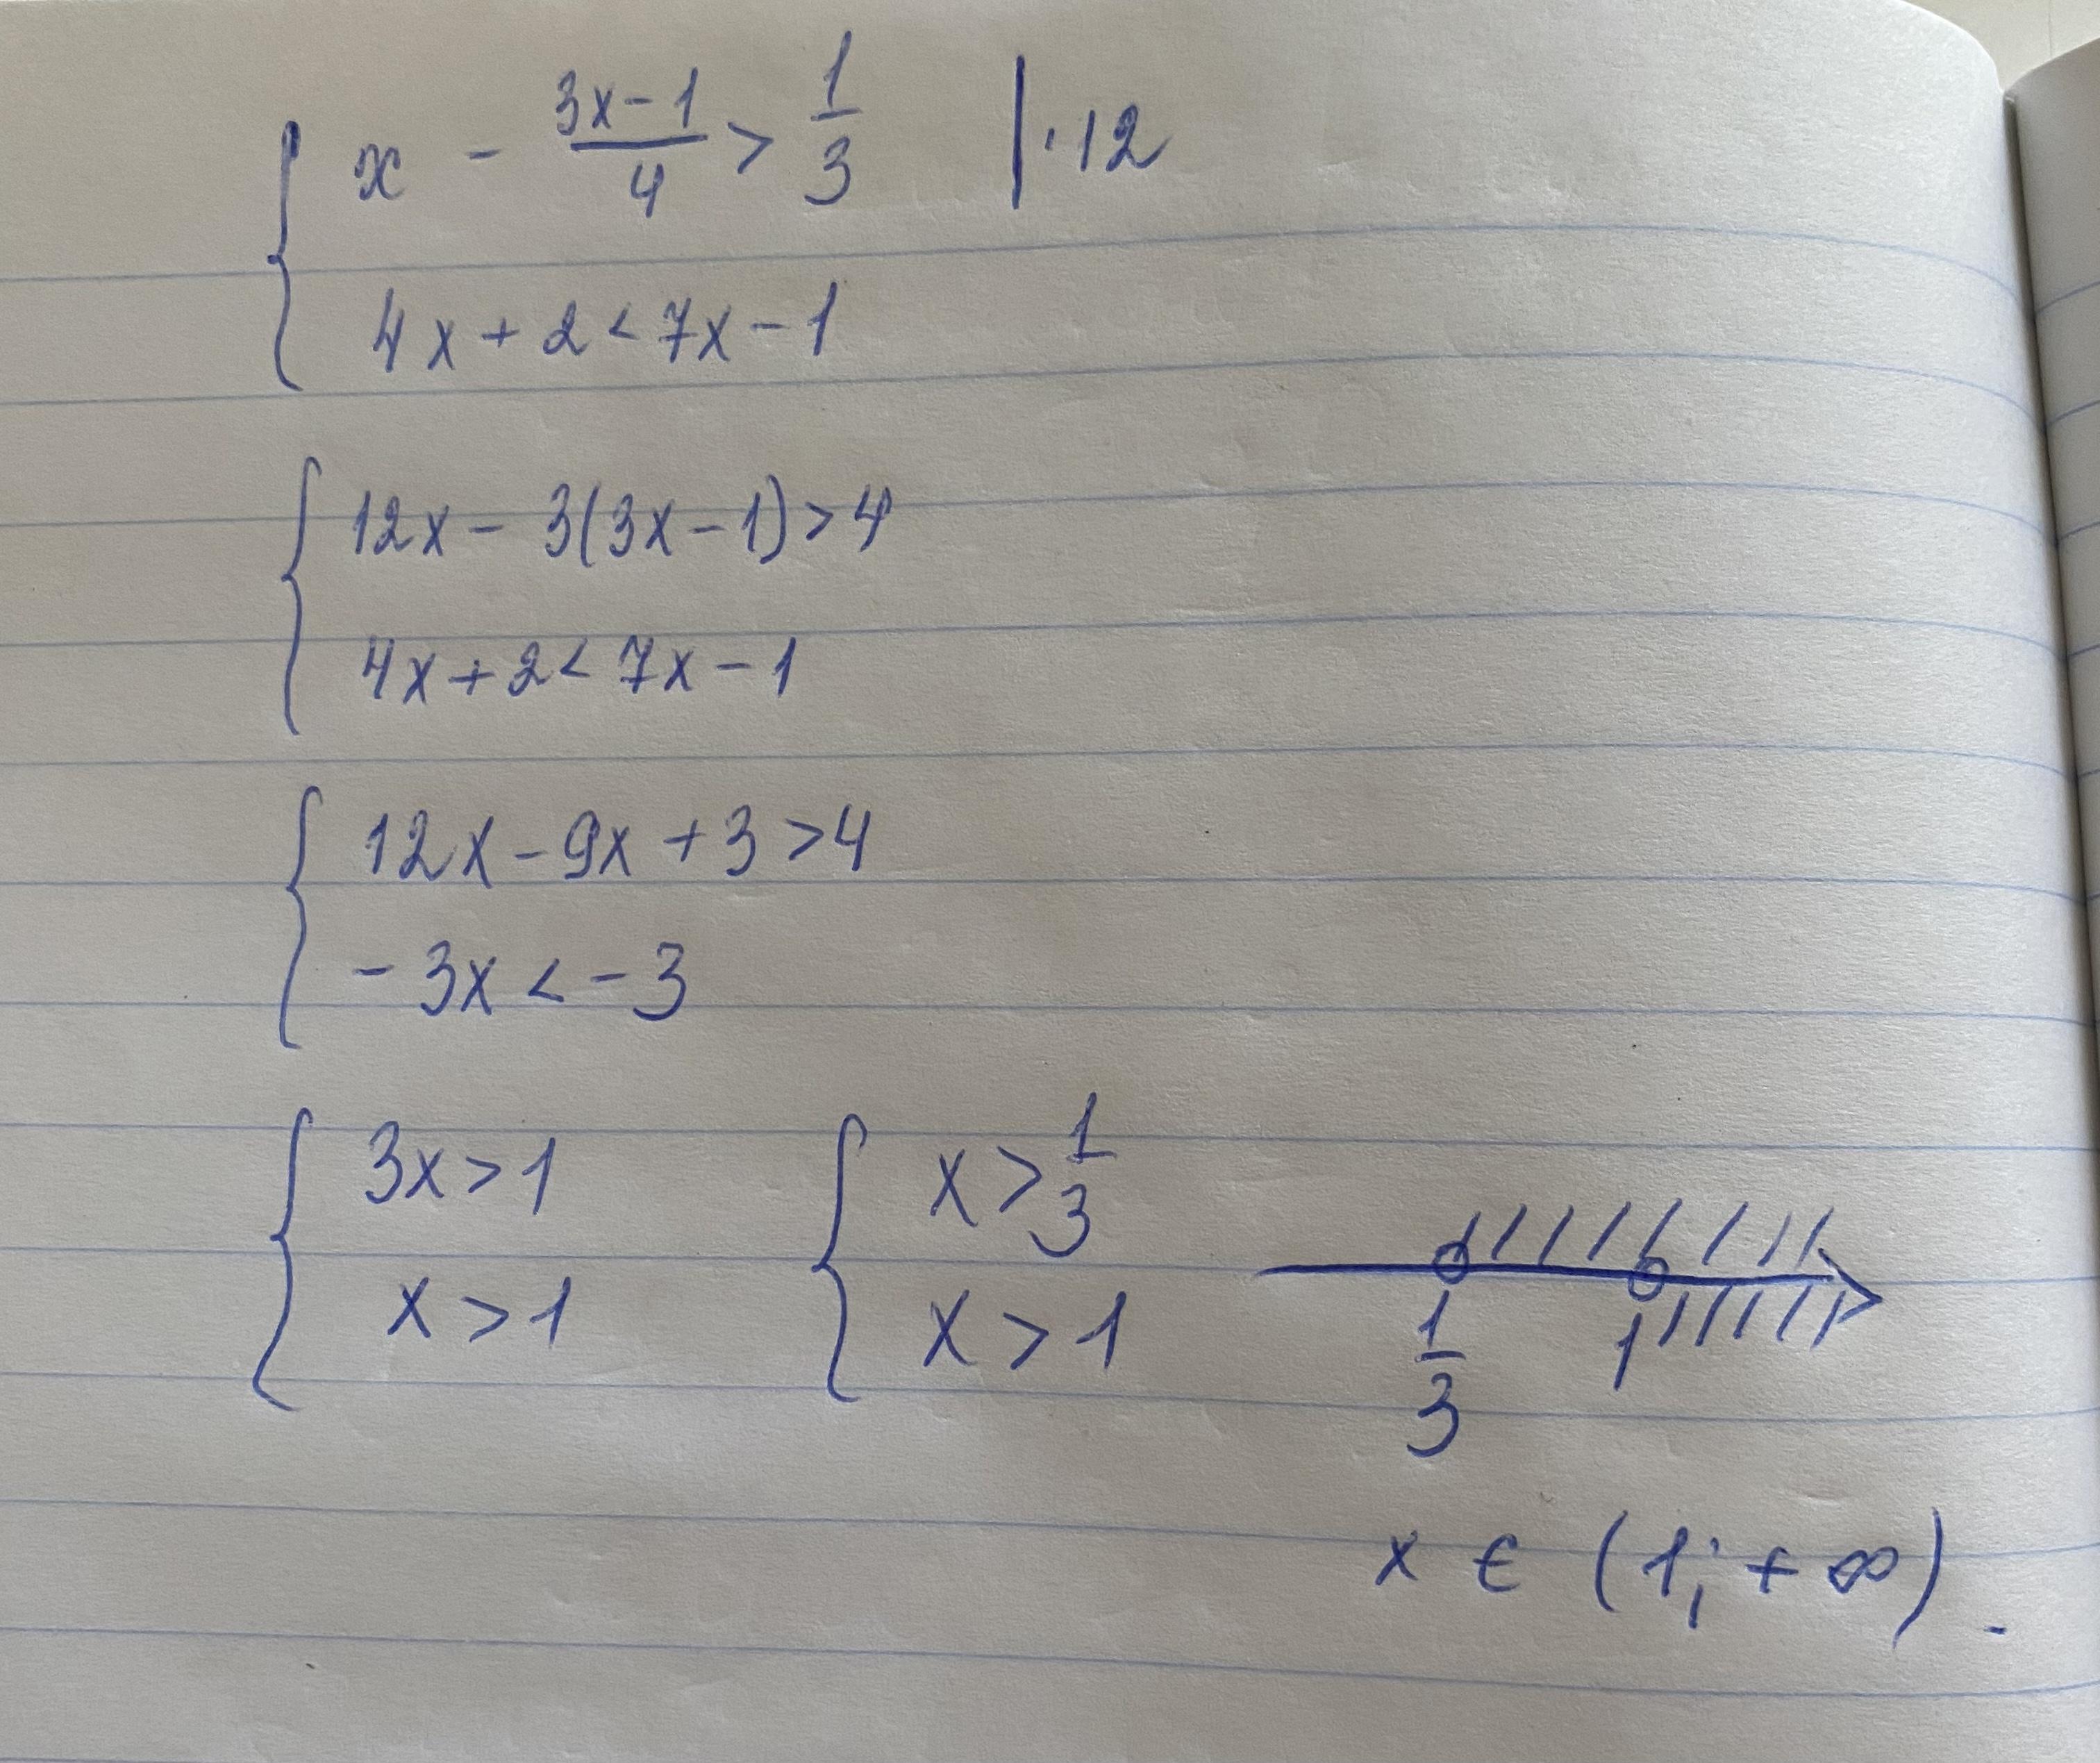 { x - (3x-1)/4 > 1/3 | · 12
4x + 2 < 7x - 1
{ 12x - 3(3x - 1) > 4
4x + 2 < 7x - 1
{ 12x - 9x + 3 > 4
- 3x < - 3
{ 3x > 1 { x > 1/3
x > 1 x > 1
1/3 1
x ∈ (1; + ∞).